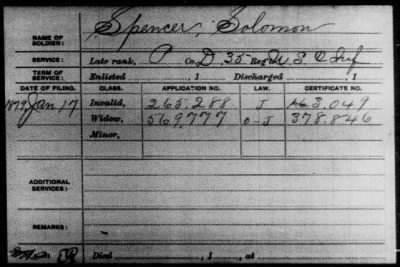 NAME OF SOLDIER: Spencer, Solomon
SERVICE: Late rank, P Co. D, 35 Reg't U. S. C Inf
TERM OF SERVICE: Enlisted , 1 Discharged , 1
DATE OF FILING. CLASS. APPLICATION NO. LAW. CERTIFICATE NO.
1879 Jan. 17 Invalid, 265.288 J 163.049
Widow, 569,777 O-J 378.846
Minor,
ADDITIONAL SERVICES:
REMARKS:
Died , 1 , at